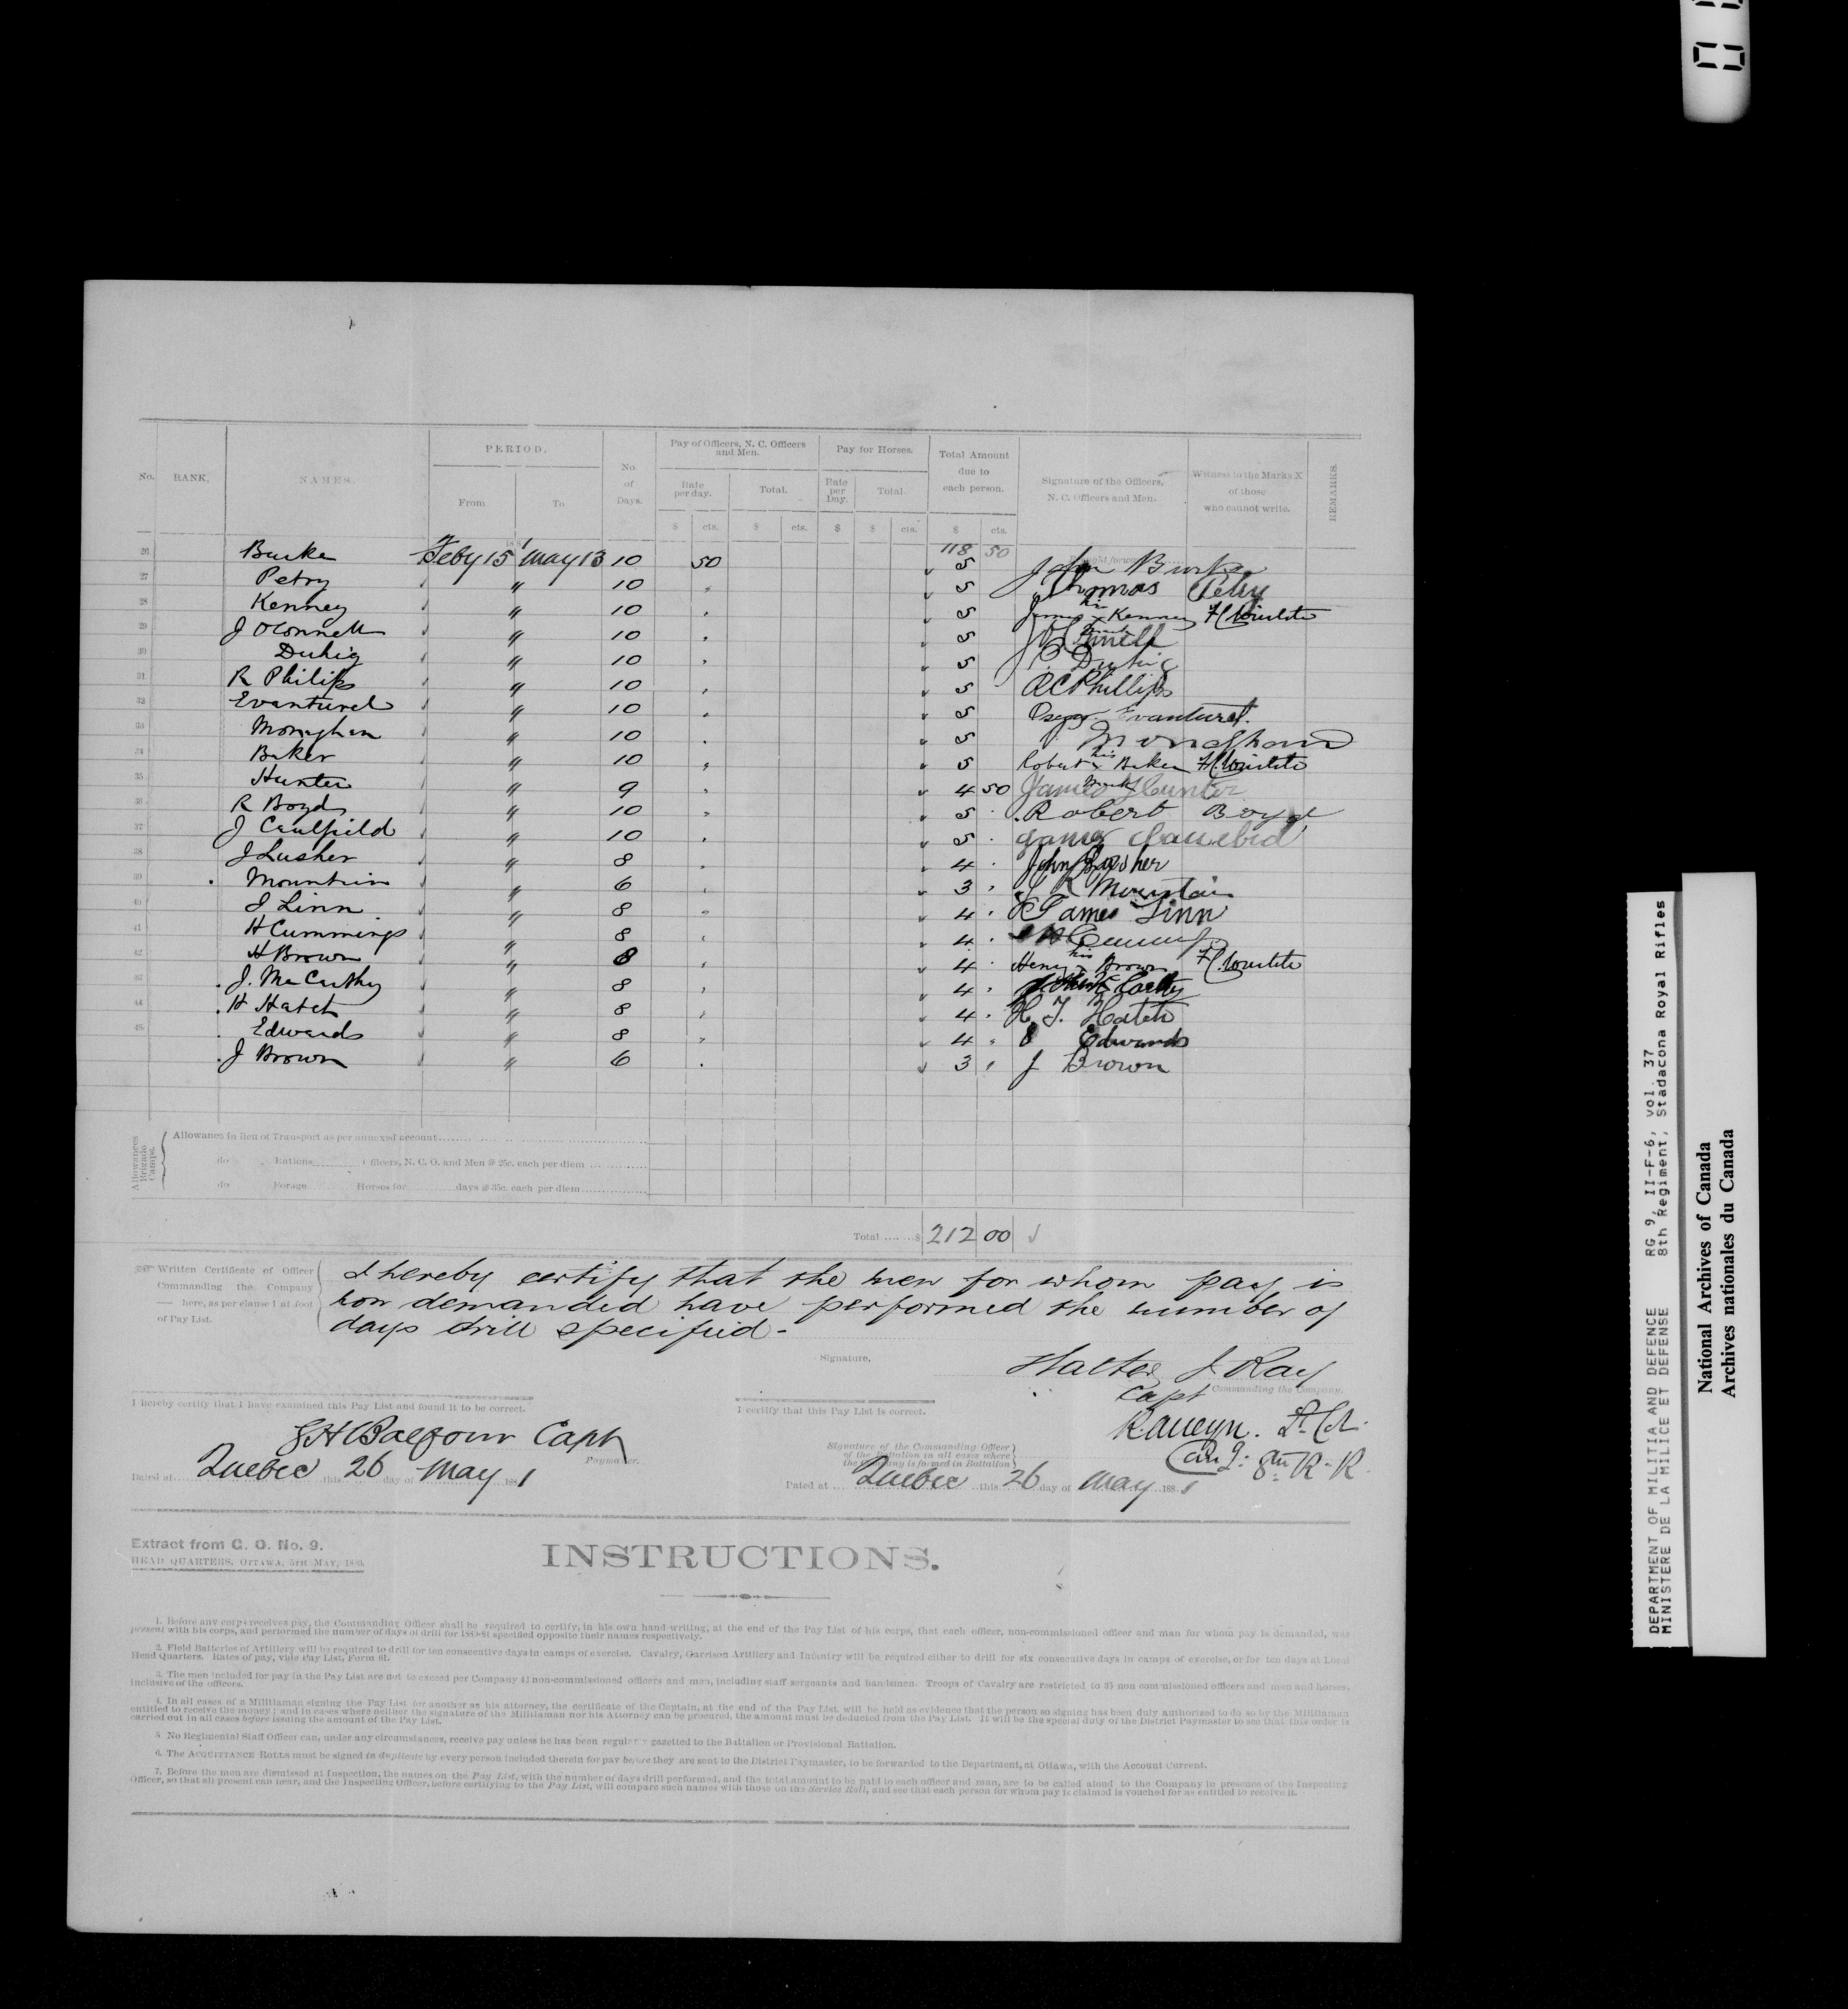 No. RANK. NAMES. PERIOD. No. of Days. Pay of Officers, N. C. Officers and Men. Pay for Horses. Total Amount due to each person. Signature of the Officers, N. C. Officers and Men. Witness to the Marks X of those who cannot write. REMARKS.
From To Rate per day. Total. Rate per Day. Total.
$ cts. $ cts. $ $ cts. $ cts.
188 1 118 50
26 Burke Feby 15 May 13 10 50 5 John Burke
27 Petry " 10 5 Thomas Petry
28 Kenney " 10 5 James his x Kenney
29 J OConnell " 10 5
30 Duhig " 10 5 Duhig
31 R Philips " 10 5 R C Phillips
32 Evanturel " 10 5 Evanturel.
33 Monaghan " 10 5 Monaghan
34 Baker " 10 5 Robert his x mark Baker
35 Hunter " 9 4 50 James Hunter
36 R Boyd " 10 5 Robert Boyd
37 J Caulfield " 10 5
38 J Lusher " 8 4 John Lusher
39 Mountain " 6 3 Mountain
40 J Linn " 8 4 James Linn
41 H Cummings " 8 4
42 H Brown " 8 4 Henry his x Brown
43 J. McCarthy " 8 4
44 H Hatch " 8 4 H T. Hatch
45 Edwards " 8 4 Edwards
J Brown " 6 3 J Brown
Allowances Brigade Camps.
Allowance in lieu of Transport as per annexed account
do Rations Officers, N. C. O. and Men @ 25c. each per diem
do Forage Horses for days @ 35c. each per diem
Total $ 212 00
Written Certificate of Officer Commanding the Company here, as per clause 1 at foot of Pay List.
I hereby certify that the men for whom pay is
now demanded have performed the number of
days drill specified -
Signature,
Walter J. Ray
Capt Commanding the Company.
I hereby certify that I have examined this Pay List and found it to be correct.
I certify that this Pay List is correct.
Balfour Capt
Paymaster.
Signature of the Commanding Officer of the Battalion in all cases where the Company is formed in Battalion
R. Alleyn. Lt Col.
8th R. R.
Dated at Quebec this 26 day of May 1881
Dated at Quebec this 26 day of May 1881
Extract from G. O. No. 9.
HEAD QUARTERS, OTTAWA, 5TH MAY, 1880.
INSTRUCTIONS.
1. Before any corps receives pay, the Commanding Officer shall be required to certify, in his own hand-writing, at the end of the Pay List of his corps, that each officer, non-commissioned officer and man for whom pay is demanded, was
present with his corps, and performed the number of days of drill for 1880-81 specified opposite their names respectively.
2. Field Batteries of Artillery will be required to drill for ten consecutive days in camps of exercise. Cavalry, Garrison Artillery and Infantry will be required either to drill for six consecutive days in camps of exercise, or for ten days at Local
Head Quarters. Rates of pay, vide Pay List, Form 61.
3. The men included for pay in the Pay List are not to exceed per Company 42 non-commissioned officers and men, including staff sergeants and bandsmen. Troops of Cavalry are restricted to 35 non commissioned officers and men and horses,
inclusive of the officers.
4. In all cases of a Militiaman signing the Pay List for another as his attorney, the certificate of the Captain, at the end of the Pay List, will be held as evidence that the person so signing has been duly authorized to do so by the Militiaman
entitled to receive the money; and in cases where neither the signature of the Militiaman nor his Attorney can be procured, the amount must be deducted from the Pay List. It will be the special duty of the District Paymaster to see that this order is
carried out in all cases before issuing the amount of the Pay List.
5. No Regimental Staff Officer can, under any circumstances, receive pay unless he has been regularly gazetted to the Battalion or Provisional Battalion.
6. The ACQUITTANCE ROLLS must be signed in duplicate by every person included therein for pay before they are sent to the District Paymaster, to be forwarded to the Department, at Ottawa, with the Account Current.
7. Before the men are dismissed at Inspection, the names on the Pay List, with the number of days drill performed, and the total amount to be paid to each officer and man, are to be called aloud to the Company in presence of the Inspecting
Officer, so that all present can hear, and the Inspecting Officer, before certifying to the Pay List, will compare such names with those on the Service Roll, and see that each person for whom pay is claimed is vouched for as entitled to receive it.
DEPARTMENT OF MILITIA AND DEFENCE RG 9, II-F-6, vol. 37
MINISTERE DE LA MILICE ET DEFENSE 8th Regiment, Stadacona Royal Rifles
National Archives of Canada
Archives nationales du Canada